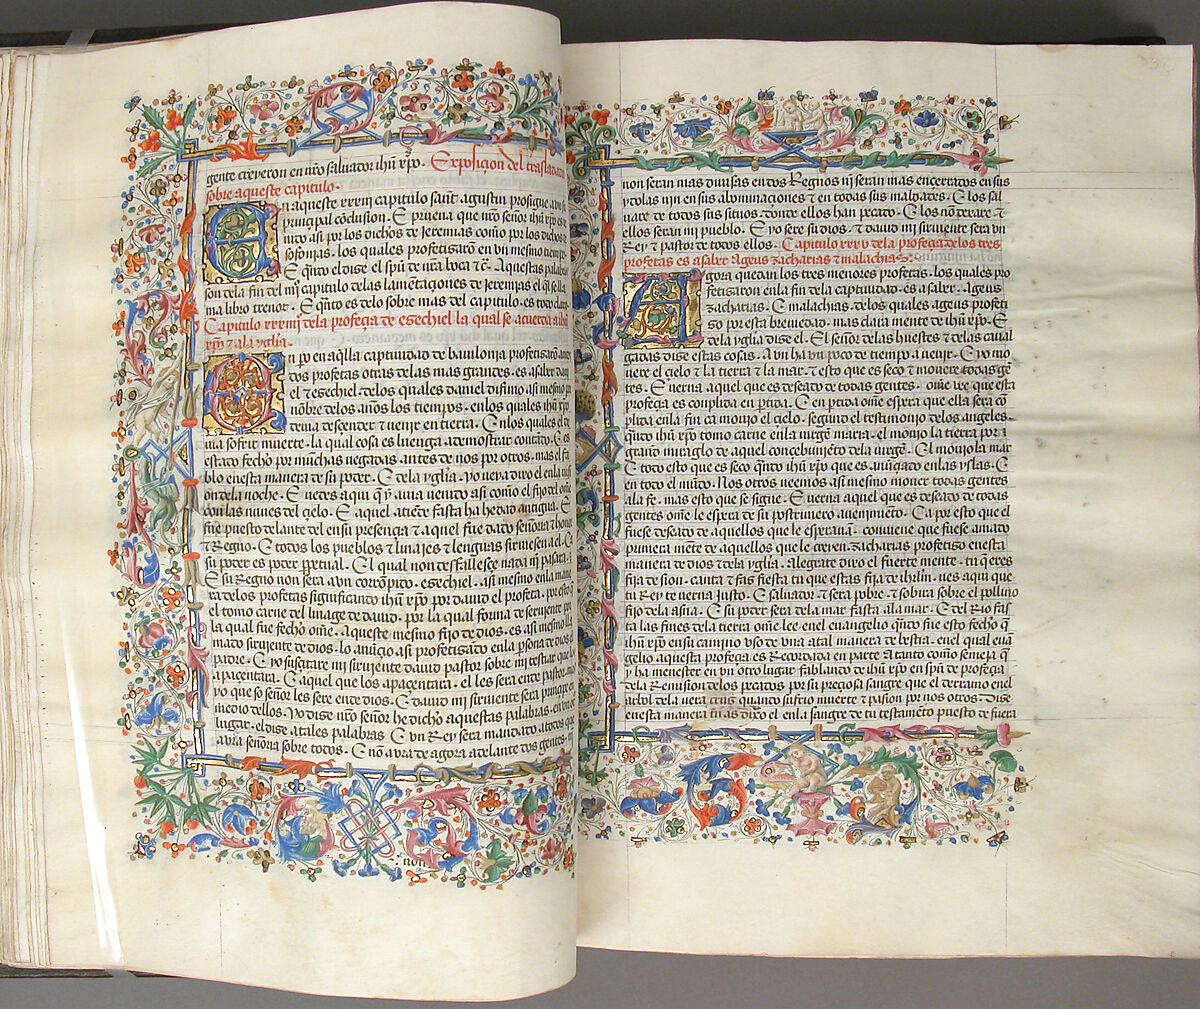 gente creyeron en nr̃o saluator ihũ xp̃o · Exposiçion del trasladador
sobre aqueste capitulo ·
En aqueste xxxiij capitulo sant agustin prosigue a su
prinçipal cõclusion · E prueua que nr̃o señor ihũ xp̃o
asi por los dichos de Jeremias como por los dichos de
sofonias · los quales profetizarõ en vn mesmo tiempo
E q̃nto el dise el spũ de nr̃a boca ⁊c̃ · Aquestas palabras
son dela fin del iiij capitulo delas lamẽtaçiones de Jeremyas el q̃l se lla
ma libro trenor · E q̃nto es delo sobre mas del capitulo · es todo claro ·
Capitulo xxxiiij dela profeçia de ezechiel la qual se acuerda a ihũ
xp̃o ⁊ ala yglia ·
En p̃o en aq̃lla captiuidad de bauilonja profetizarõ
dos profetas otras delas mas grandes · es a saber dany
el ⁊ ezechiel · delos quales daniel difinio asi mesmo
nõbre delos años los tiempos · enlos quales ihũ xp̃o
deuia desçender ⁊ venjr en tierra · E enlos quales el de
uia sofrir muerte · la qual cosa es luenga a demostrar contãdo · E es
estado fecho por munchas vegadas antes de nos por otros · mas el fa
blo enesta manera de su poder · E dela yglia · yo veya dixo el enla visi
on dela noche · E vedes aqui q̃ yua venido asi como el fijo del om̃e
con las nuues del çielo · E aquel atiẽde fasta ha hedad antigua · E
fue puesto delante del en su presençia ⁊ aquel fue dado señoria ⁊ honor
⁊ Regno · E todos los pueblos ⁊ linajes ⁊ lenguas siruiesen a el · E
su poder es poder perpetual · El qual non desfallesçe nada nj pasara ·
E su Regno non sera avn corronpido · ezechiel · asi mesmo enla mane
ra delos profetas significando ihũ xp̃o por dauid el profeta · por esto q̃
el tomo carne del linage de dauid · por la qual forma de seruiente por
la qual fue fecho om̃e · A queste mesmo fijo de dios · es asi mesmo lla
mado siruiente de dios · lo anũçio asi profetizado enla p̃sona de dios el
padre · E yo susçitare mi siruiente dauid pastor sobre mj testar que los
apaçentara · E aquel que los apaçentara · el les sera ente pastor · mas
yo que so señor les sere ente dios · E dauid mj siruiente sera prinçipe en
medio dellos · yo dixe nr̃o señor he dicho aquestas palabras · en otro
lugar · el dise atales palabras E vn Rey sera mandado atodos que
avra señoria sobre todos · E nõ avra de agora adelante dos gentes · nj
non
non seran mas diuisas en dos Regnos nj seran mas ençerrados en sus
ydolas njn en sus abominaçiones ⁊ en todas sus maldades · E los sal
uare de todos sus sitios · donde ellos han pecado · E los mõdare · ⁊
ellos seran mj pueblo · E yo sere su dios · ⁊ dauid mj siruiente sera vn
Rey ⁊ pastor de todos ellos · Capitulo xxxv dela profeçia delos tres
profetas es a saber Ageus zacharias ⁊ malachias ·
Agora quedan los tres menores profetas · los quales pro
fetizaron enla fin dela captiuidad · es a saber · Ageus
zacharias · E malachias · delos quales ageus profeti
zo por esta breuiedad · mas clara mente de ihũ xp̃o · E
dela yglia dise el · El señor delas huestes ⁊ delas caual
gadas dise estas cosas · Avn ha vn poco de tiempo a venjr · E yo mo
uiere el çielo ⁊ la tierra ⁊ la mar · ⁊ esto que es seco ⁊ mouere todas gẽ
tes · E uerna aquel que es deseado de todas gentes · om̃e vee que esta
profeçia es complida en p̃tida · E en p̃tida om̃e espera que ella sera cõ
plida enla fin ca mouio el çielo · segund el testimonio delos angeles ·
q̃ndo ihũ xp̃o tomo carne enla virgẽ maria · el mouio la tierra por ·
grand miraglo de aquel conçebimjẽto dela uirgẽ · El mouio la mar
E todo esto que es seco q̃ndo ihũ xp̃o que es anũçiado enlas yslas · E
en todo el mũdo · Nos otros veemos asi mesmo mouer todas gentes
ala fe · mas esto que se sigue · E uerna aquel que es deseado de todas
gentes om̃e le espera de su postrimero auenimjẽto · Ca por esto que el
fuese deseado de aquellos que le esperauan · conuiene que fuese amado
primera mẽte de aquellos que le creyen · zacharias profetizo enesta
manera de dios ⁊ dela yglia · Alegrate dixo el fuerte mente · tu q̃ eres
fija de sion · canta ⁊ fas fiesta tu que estas fija de ihrlm̃ · ves aqui que
tu Rey te verna Justo · E saluador · ⁊ sera pobre · ⁊ sobira sobre el pollino
fijo dela asna · E su poder sera dela mar fasta ala mar · E del Rio fas
ta las fines dela tierra om̃e lee enel euangelio q̃ndo fue esto fecho q̃
ihũ xp̃o en su camino vso de vna atal manera de bestia · enel qual euã
gelio aquesta profeçia es Recordada en parte Atanto como semeja q̃
y ha menester en vn otro lugar fablando de ihũ xp̃o en spũ de profeçia
dela Remision delos pecados por su preçiosa sangre que el derramo enel
arbol dela uera crus quando sufrio muerte ⁊ pasion por nos otros · Dise
enesta manera mas dixo el enla sangre de tu testamẽto puesto de fuera